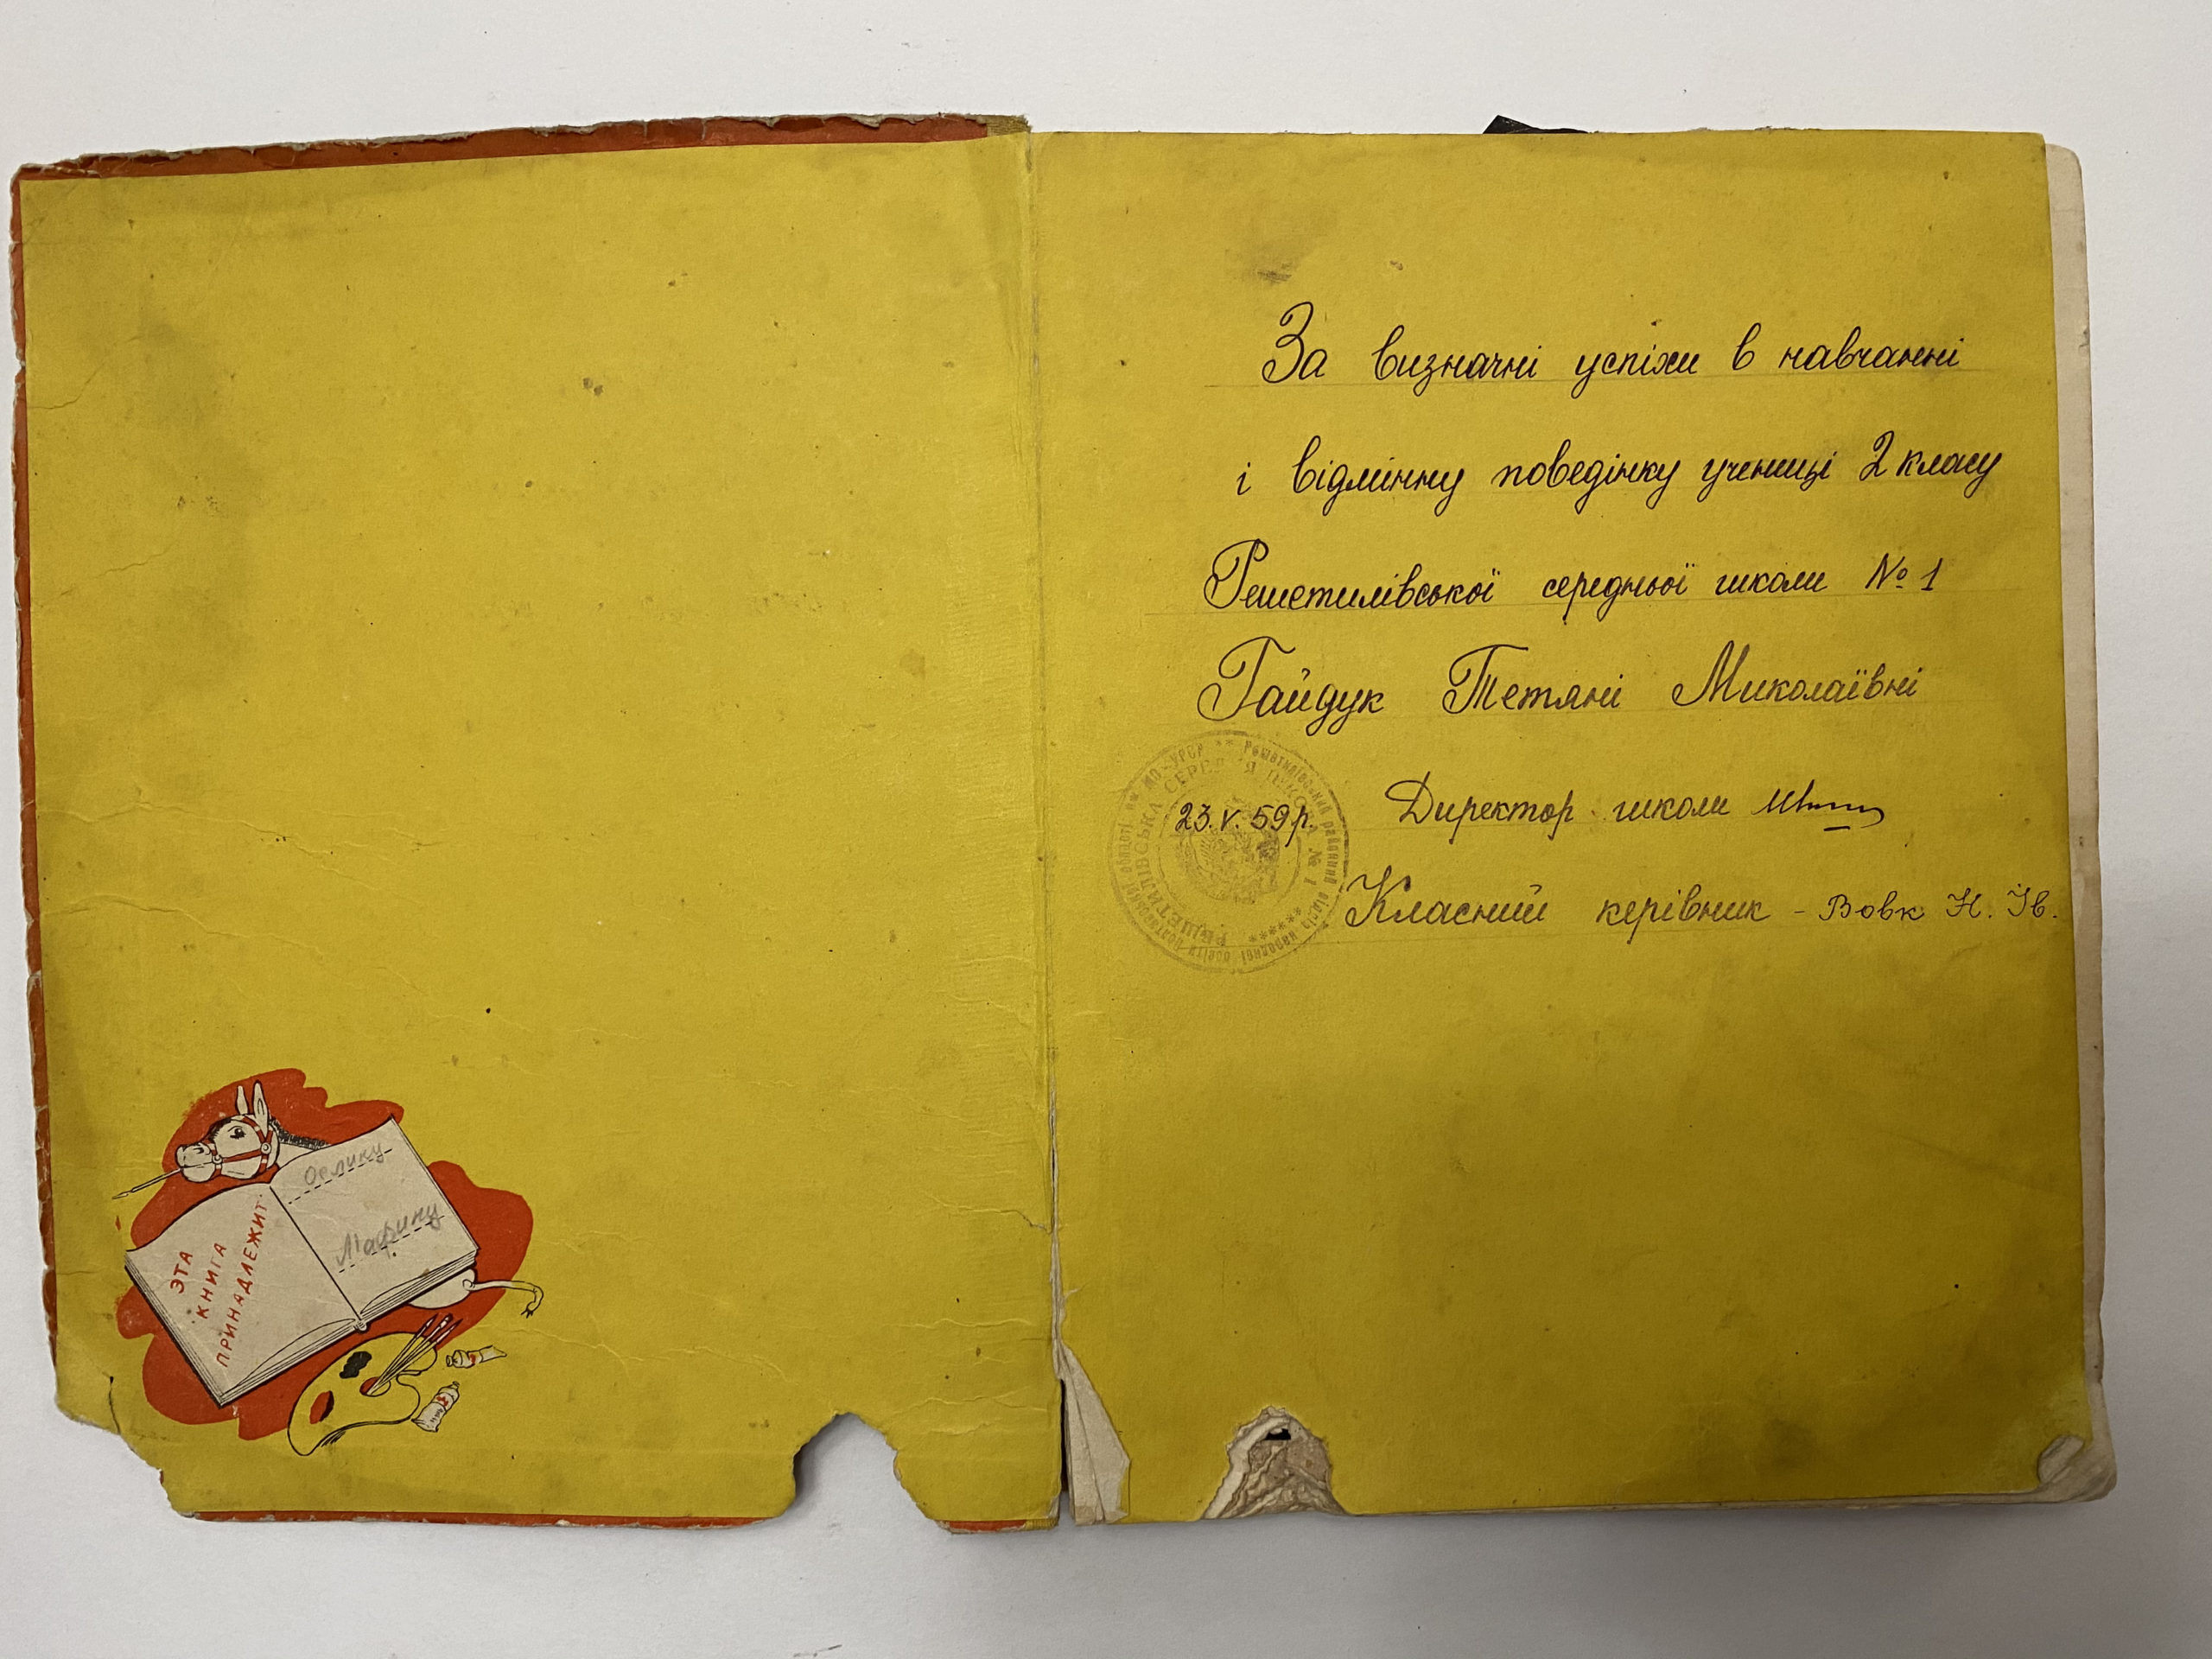 ЭТА
КНИГА
ПРИНАДЛЕЖИТ
Ослику
Мафину
За визначні успіхи в навчанні
і відмінну поведінку учениці 2 класу
Решетилівської середньої школи № 1
Гайдук Тетяні Миколаївні
23.V.59р. Директор школи
Класний керівник - Вовк Н. Ів.
МО-УРСР ** Решетилівський районний відділ народної освіти Полтавської області **
РЕШЕТИЛІВСЬКА СЕРЕДНЯ ШКОЛА № 1 ****